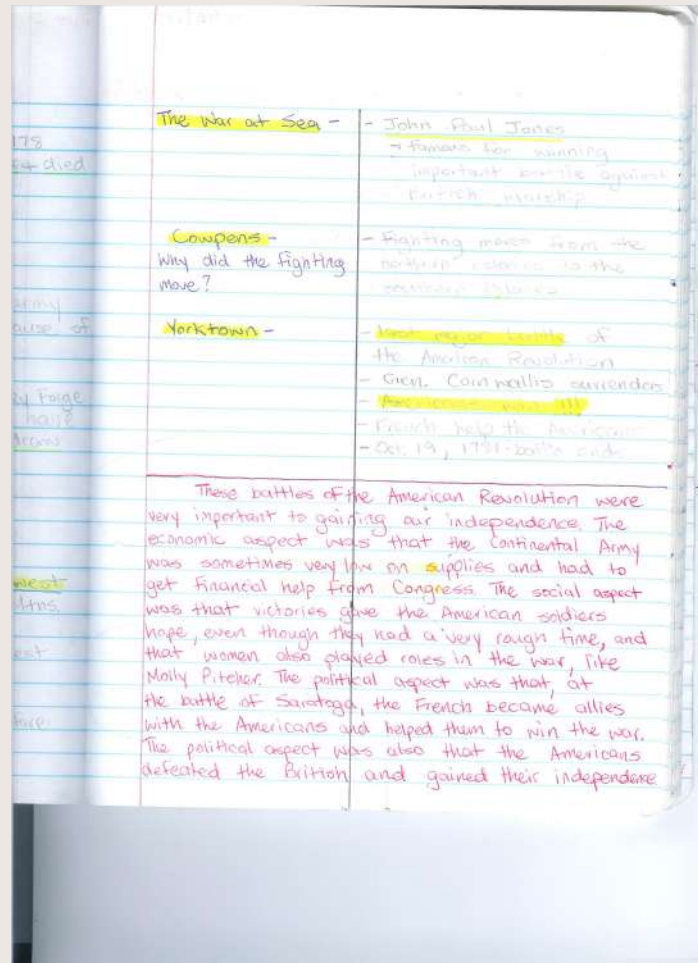 178
died
army
ause of
ey Forge
have
west
Mtns,
The War at Sea -
- John Paul Jones
→ famous for winning
important battle against
British warship
Cowpens -
Why did the fighting
move?
- Fighting moves from the
northern colonies to the
southern colonies
Yorktown -
- Last major battle of
the American Revolution
- Gen. Cornwallis surrenders
- Americans win !!!
- French help the Americans
- Oct. 19, 1781 - battle ends
These battles of the American Revolution were
very important to gaining our independence. The
economic aspect was that the Continental Army
was sometimes very low on supplies and had to
get financial help from Congress. The social aspect
was that victories gave the American soldiers
hope, even though they had a very rough time, and
that women also played roles in the war, like
Molly Pitcher. The political aspect was that, at
the battle of Saratoga, the French became allies
with the Americans and helped them to win the war.
The political aspect was also that the Americans
defeated the British and gained their independence